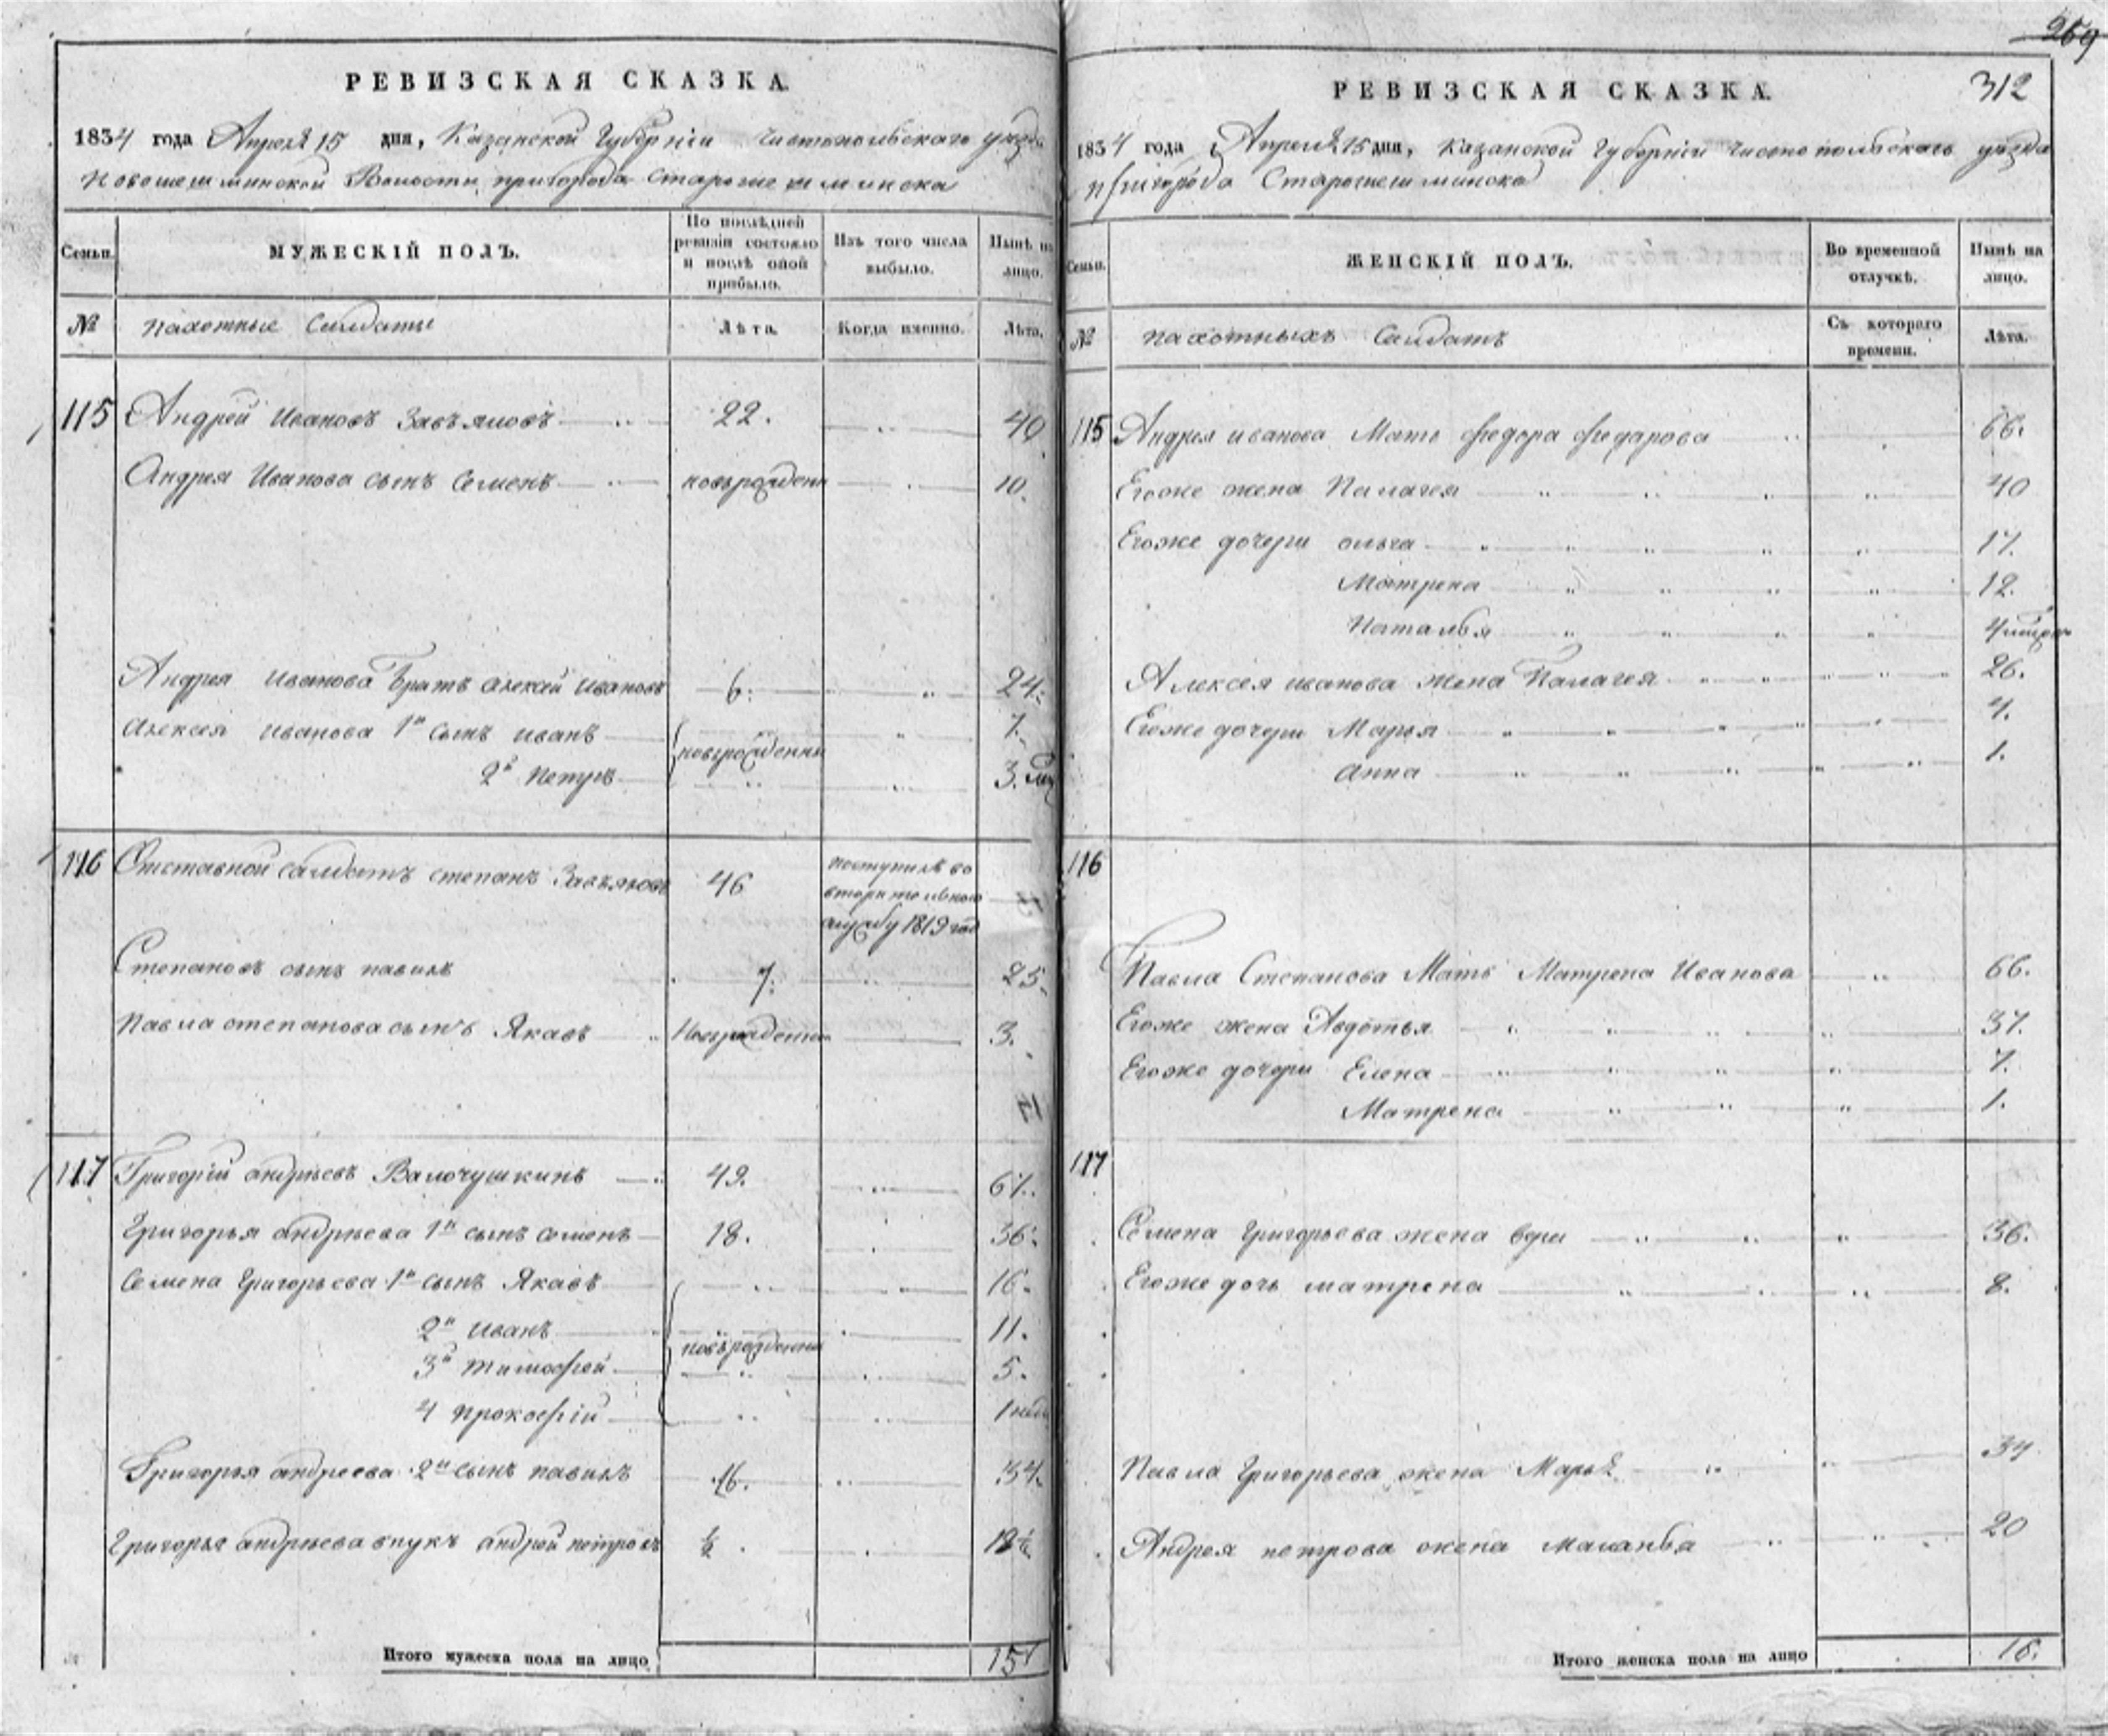 РЕВИЗСКАЯ СКАЗКА.
1834 года Апреля 15 дня, Казанской Губернiи Чистопольскаго уезда
Новошешминской Волости, пригорода Старошешминска
Семьи.
МУЖЕСКIЙ ПОЛЪ.
По послѣдней ревизiи состояло и послѣ оной прибыло.
Изъ того числа выбыло.
Нынѣ на лицо.
№
пахотные Салдаты
Лѣта.
Когда именно.
Лѣта.
115 Андрей Ивановъ Завьяловъ 22. 40
Андрея Иванова сынъ Семенъ новърожденъ 10.
Андрея Иванова братъ алексей Ивановъ 6. 24.
алексея иванова 1й сынъ иванъ новърожденни 7.
2й петръ 3.
116 Отставной салдатъ степанъ Завьяловъ 46 поступилъ во
вторительною
службу 1819 год
Степановъ сынъ павилъ 7. 25.
Павла степанова сынъ Якавъ Новърожденъ 3.
117 Григорiй андрѣевъ Валочушкинъ 49. 67.
Григорья андрѣева 1й сынъ семенъ 18. 36.
Семена Григорьева 1й сынъ Якавъ 16.
2й иванъ новърожденни 11.
3й тимофей 5.
4 прокофiй 1 неде
Григорья андреева 2й сынъ павилъ 16. 34.
Григорья андрѣева внукъ андрей петровъ ½ 18½
Итого мужеска пола на лицо 15
269
312
РЕВИЗСКАЯ СКАЗКА.
1834 года Апреля 15 дня, Казанской Губернiи Чистопольскаго уѣзда
пригорода Старошешминска
Семьи.
ЖЕНСКIЙ ПОЛЪ.
Во временной отлучкѣ.
Нынѣ на лицо.
№
пахотныхъ Салдатъ
Съ котораго времени.
Лѣта.
115 Андрея иванова Мать федора федарова 66.
Егоже жена Палагея 40
Егоже дочери ольга 17.
Матрена 12.
Наталья 4
Алексея иванова жена Палагея 26.
Егоже дочери Марья 4.
анна 1.
116
Павла Степанова Мать Матрена Иванова 66.
Егоже жена Авдотья 37.
Егоже дочери Елена 7.
Матрена 1.
117
Семена Григорьева жена 36.
Егоже дочь матрена 8.
Павла Григорьева жена Марья 34
Андрея петрова жена Маланья 20
Итого женска пола на лицо 16.